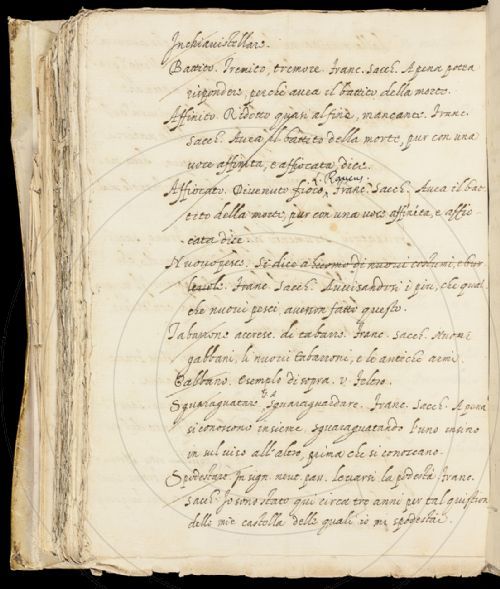 Inchiavistellare.
Battito. Tremito, tremore. Franc. Sacch. Apena potea
rispondere, perche avea il battito della morte.
Affinito. Ridotto quasi al fine, mancante. Franc.
Sacch. Avea il battito della morte, pur con una
voce affinita, e affiocata, dice.
Affiocato. Divenuto fioco, Franc. Sacch. Avea il bat-
tito della morte, pur con una voce affinita, e affio-
cata dice.
Nuovo pesce. Si dice a huomo di nuovi costumi, e bur
levole. Franc. Sacch. Avvisandosi i piu, che qual
che nuovi pesci avesson fatto questo.
Tabarrone accresc. di tabarro. Franc. Sacch. Nuovi
gabbani, li nuovi tabarroni, e le antiche armi.
Gabbano. Esemplo di sopra. v
Squaraguatare, sguaraguardare. Franc. Sacch. A pena
si conoscono insieme, sguaraguatando l'uno insino
in sul viso all'altro, prima che si conoscano.
Spodestare. In sign. neut. pass. levarsi la podestà. Franc.
Sacch. Io sono stato qui circa tre anni per tal question
delle mie castella delle quali io mi spodestai.